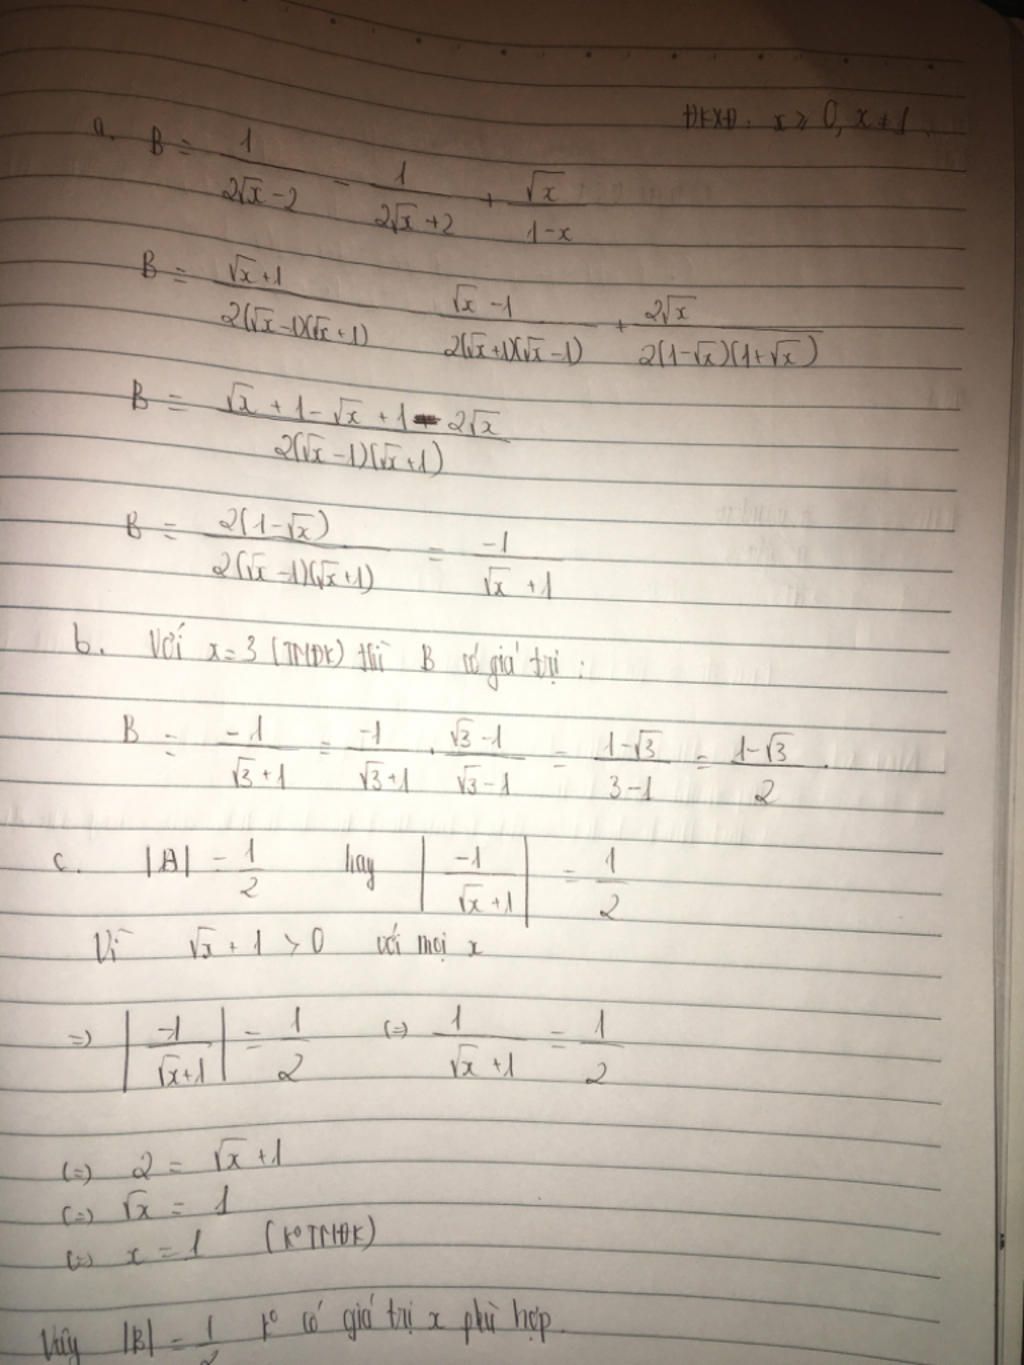 ĐKXĐ: x ≥ 0, x ≠ 1.
a. B = 1/(2√x - 2) - 1/(2√x + 2) + √x/(1-x)
B = (√x+1)/(2(√x-1)(√x+1)) (√x-1)/(2(√x+1)(√x-1)) + 2√x/(2(1-√x)(1+√x))
B = (√x + 1 - √x + 1 - 2√x)/(2(√x-1)(√x+1))
B = 2(1-√x)/(2(√x-1)(√x+1)) = -1/(√x+1)
b. Với x=3 (TMĐK) thì B có giá trị:
B = -1/(√3+1) = -1/(√3+1) . (√3-1)/(√3-1) = (1-√3)/(3-1) = (1-√3)/2.
c. |A| = 1/2 hay |-1/(√x+1)| = 1/2
Vì √x + 1 > 0 với mọi x
=> |-1/(√x+1)| = 1/2 (=) 1/(√x+1) = 1/2
(=) 2 = √x+1
(=) √x = 1
(=) x = 1 (K° TMĐK)
Vậy |B| = 1/2 k° có giá trị x phù hợp.